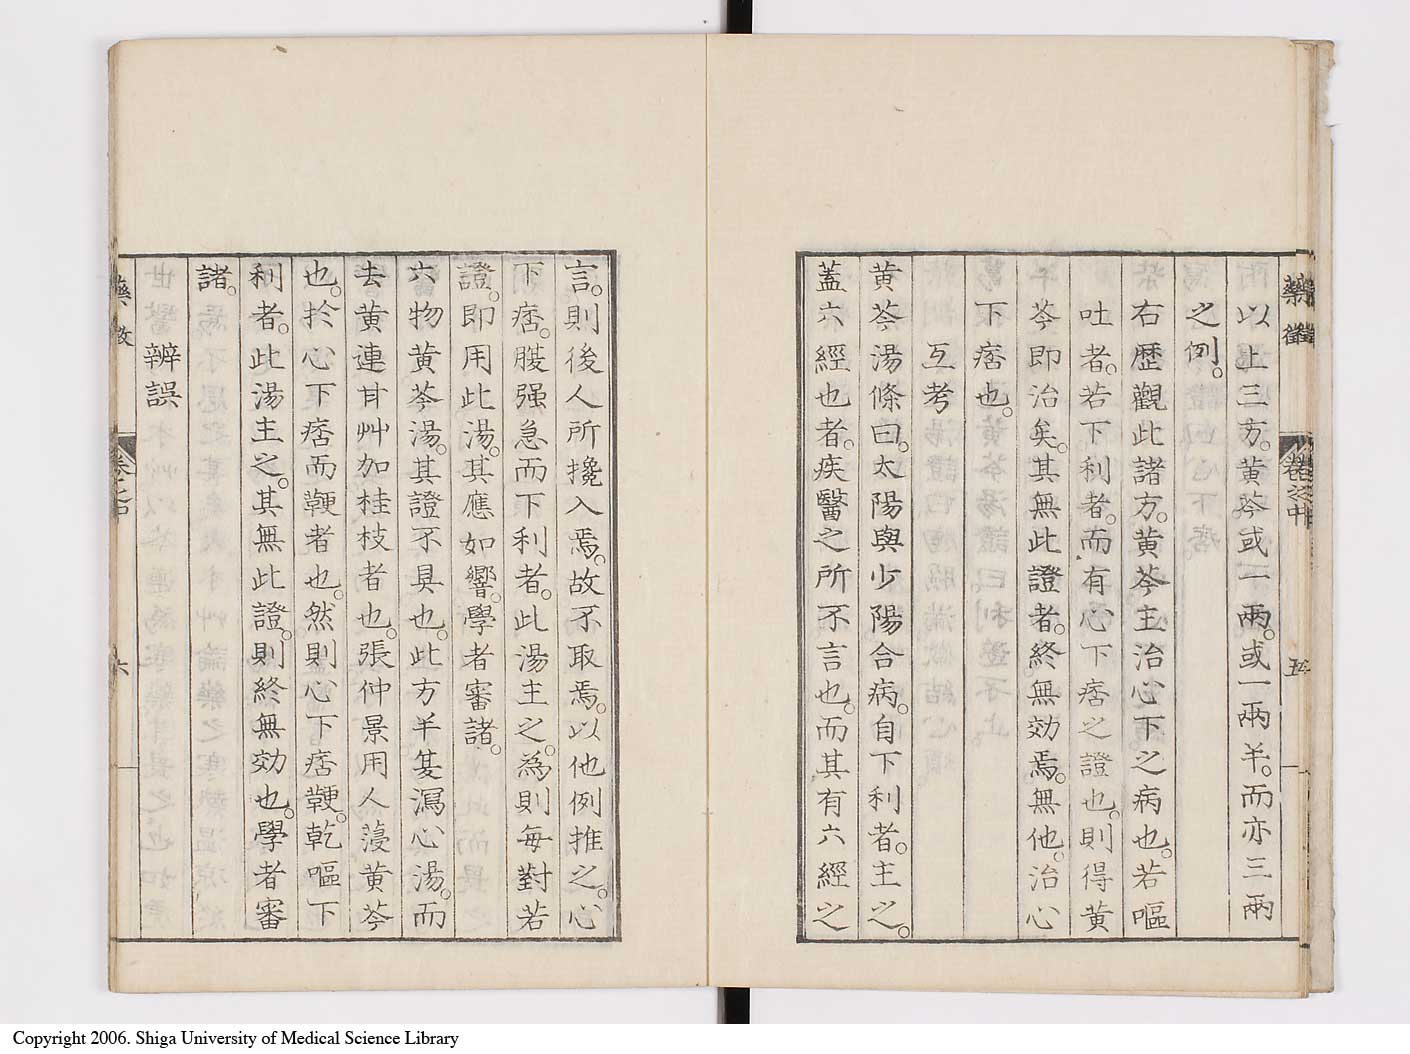 藥徵
卷之中
五
所以上三方。黄芩或一兩。或一兩半。而亦三兩
之例。
右歷觀此諸方。黄芩主治心下之病也。若嘔
吐者。若下利者。而有心下痞之證也。則得黄
芩即治矣。其無此證者。終無効焉。無他。治心
下痞也。
互考
黄芩湯條曰。太陽與少陽合病。自下利者。主之。
蓋六經也者。疾醫之所不言也。而其有六經之
言。則後人所攙入焉。故不取焉。以他例推之。心
下痞。腹强急而下利者。此湯主之。爲則每對若
證。即用此湯。其應如響。學者審諸。
六物黄芩湯。其證不具也。此方半夏瀉心湯。而
去黄連甘艸加桂枝者也。張仲景用人薓黄芩
也。於心下痞而鞕者也。然則心下痞鞕。乾嘔下
利者。此湯主之。其無此證。則終無効也。學者審
諸。
辨誤
藥徵
六
Copyright 2006. Shiga University of Medical Science Library